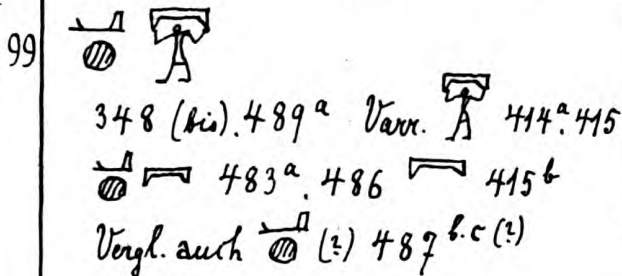 99
348 (bis). 489ᵃ Varr. 414ᵃ. 415
483ᵃ. 486 415ᵇ
Vergl. auch (?) 487ᵇ·ᶜ (?)